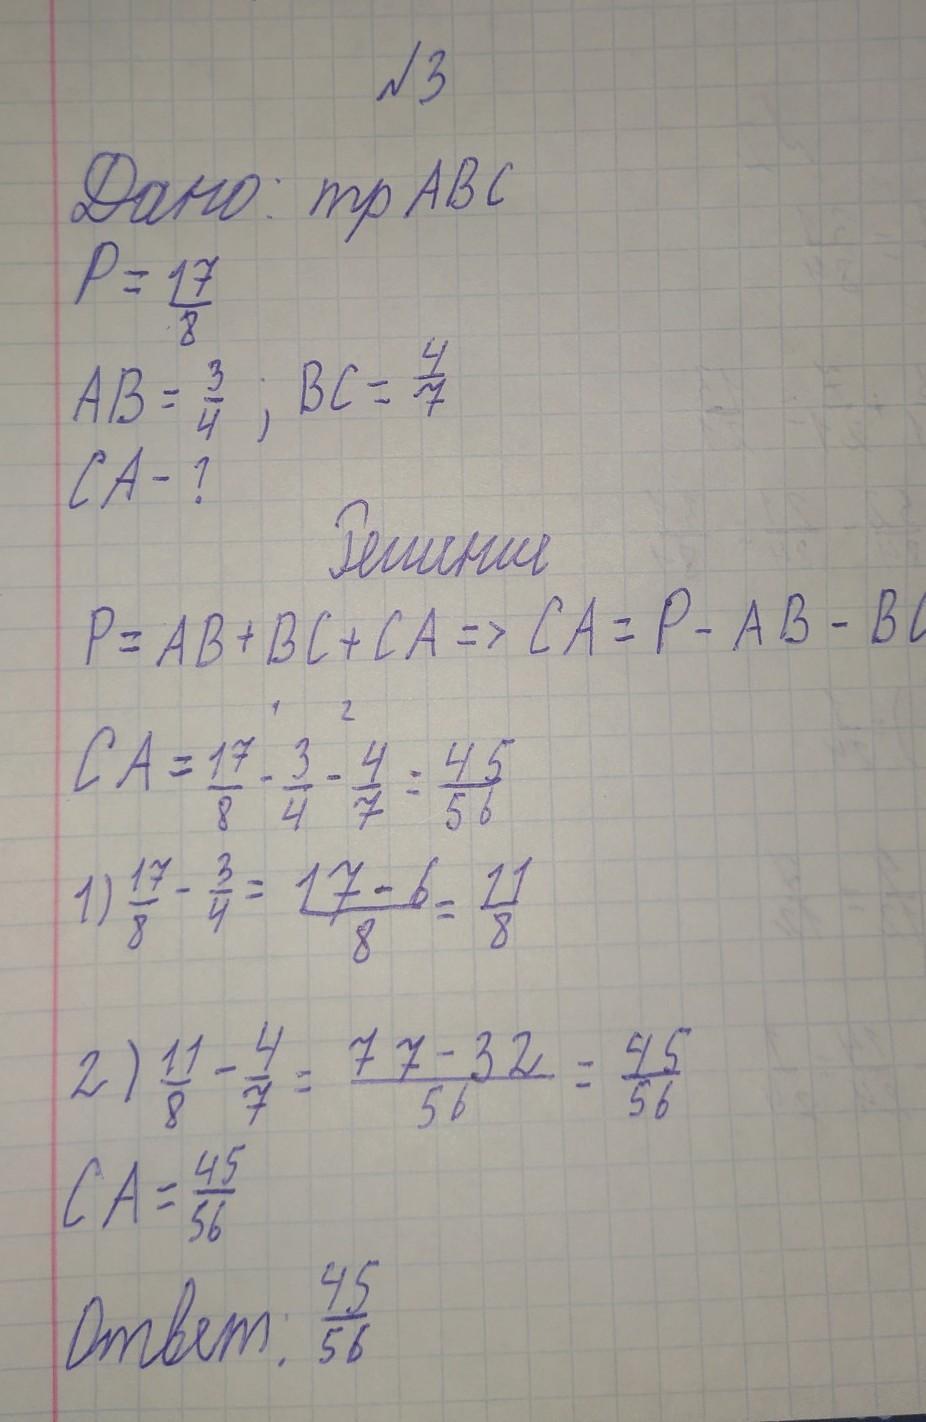 №3
Дано: тр ABC
P = 17/8
AB = 3/4 ; BC = 4/7
CA - ?
Решение
P = AB + BC + CA => CA = P - AB - BC
1 2
CA = 17/8 - 3/4 - 4/7 = 45/56
1) 17/8 - 3/4 = (17 - 6)/8 = 11/8
2) 11/8 - 4/7 = (77 - 32)/56 = 45/56
CA = 45/56
Ответ: 45/56